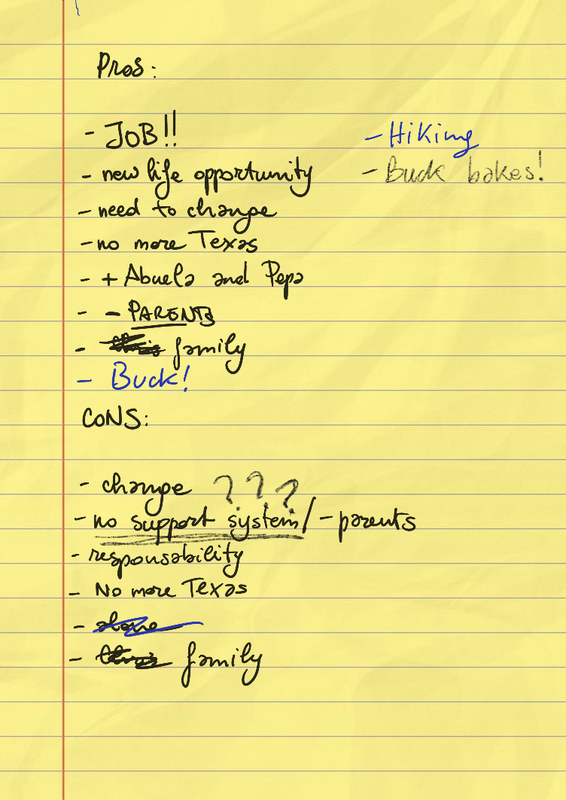 Pros:
- JOB!!
- new life opportunity
- need to change
- no more Texas
- + Abuela and Pepa
- - PARENTS
- family
- Buck!
- Hiking
- Buck bakes!
CONS:
- change ???
- no support system / - parents
- responsability
- No more Texas
- alone
- family